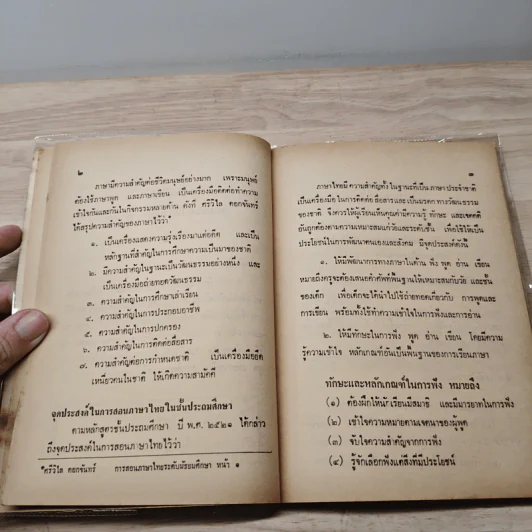 ๒
ภาษามีความสำคัญต่อชีวิตมนุษย์อย่างมาก เพราะมนุษย์
ต้องใช้ภาษาพูด และภาษาเขียน เป็นเครื่องมือติดต่อทำความ
เข้าใจกันและกันในกิจกรรมหลายด้าน ดังที่ ศรีวิไล ดอกจันทร์
ได้สรุปความสำคัญของภาษาไว้ว่า*
๑. เป็นเครื่องแสดงความรุ่งเรืองมาแต่อดีต และเป็น
หลักฐานที่สำคัญในการศึกษาความเป็นมาของชาติ
๒. มีความสำคัญในฐานะเป็นวัฒนธรรมอย่างหนึ่ง และ
เป็นเครื่องมือถ่ายทอดวัฒนธรรม
๓. ความสำคัญในการศึกษาเล่าเรียน
๔. ความสำคัญในการประกอบอาชีพ
๕. ความสำคัญในการปกครอง
๖. ความสำคัญในการติดต่อสื่อสาร
๗. ความสำคัญต่อการกำหนดชาติ เป็นเครื่องมือยึด
เหนี่ยวคนในชาติ ให้เกิดความสามัคคี
จุดประสงค์ในการสอนภาษาไทยในชั้นประถมศึกษา
ตามหลักสูตรชั้นประถมศึกษา ปี พ.ศ. ๒๕๒๑ ได้กล่าว
ถึงจุดประสงค์ในการสอนภาษาไทยไว้ว่า
*ศรีวิไล ดอกจันทร์ การสอนภาษาไทยระดับมัธยมศึกษา หน้า ๑
๓
ภาษาไทยมีความสำคัญทั้งในฐานะที่เป็น ภาษาประจำชาติ
เป็นเครื่องมือในการติดต่อสื่อสาร และเป็นมรดกทางวัฒนธรรม
ของชาติ จึงควรให้ผู้เรียนเห็นคุณค่ามีความรู้ ทักษะ และเจตคติ
อันถูกต้องตามความเหมาะสมแก่วัยและระดับชั้น เพื่อใช้ให้เป็น
ประโยชน์ในการพัฒนาตนเองและสังคม มีจุดประสงค์ดังนี้
๑. ให้มีพัฒนาการทางภาษาในด้าน ฟัง พูด อ่าน เขียน
หมายถึงครูจะต้องเสนอคำศัพท์พื้นฐานให้เหมาะสมกับวัย และชั้น
ของเด็ก เพื่อเด็กจะได้นำไปใช้ถ่ายทอดเกี่ยวกับ การพูดและ
การเขียน พร้อมทั้งใช้ทำความเข้าใจในการฟังและการอ่าน
๒. ให้มีทักษะในการฟัง พูด อ่าน เขียน โดยมีความ
รู้ความเข้าใจ หลักเกณฑ์อันเป็นพื้นฐานของการเรียนภาษา
ทักษะและหลักเกณฑ์ในการฟัง หมายถึง
(๑) ต้องฝึกให้นักเรียนมีสมาธิ และมีมารยาทในการฟัง
(๒) เข้าใจความหมายตามเจตนาของผู้พูด
(๓) จับใจความสำคัญจากการฟัง
(๔) รู้จักเลือกฟังแต่สิ่งที่มีประโยชน์